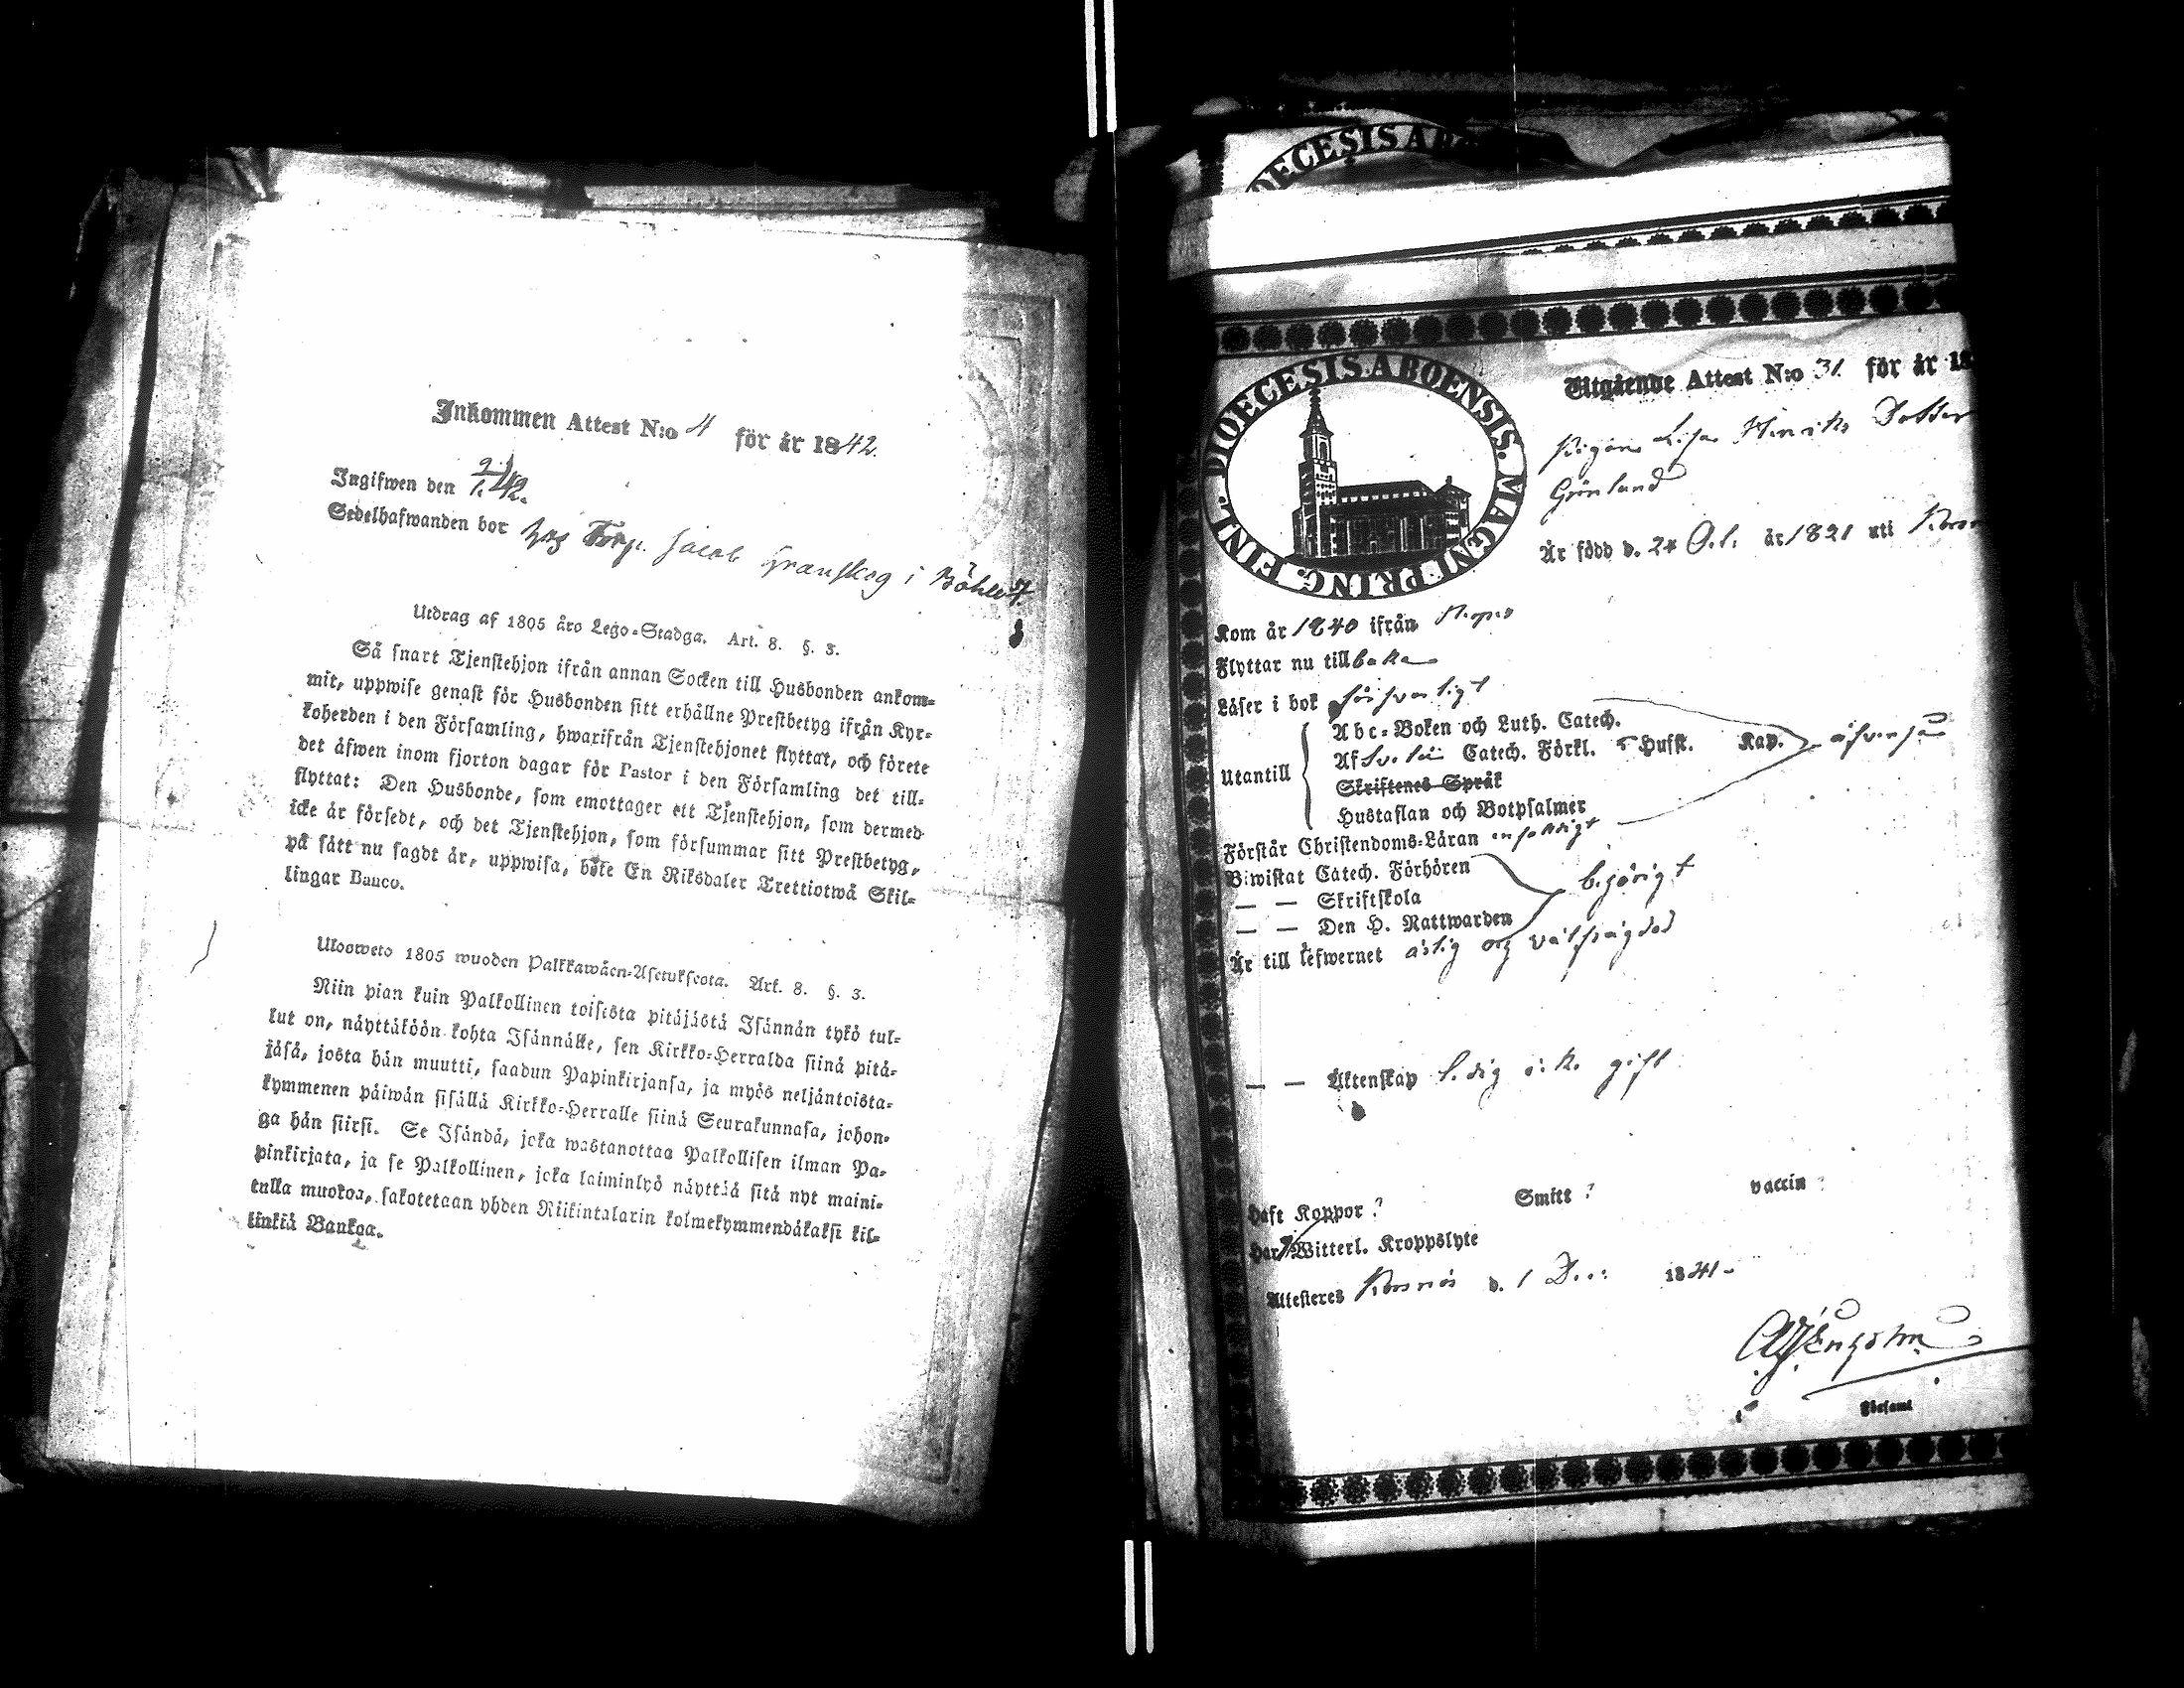 Inkommen Attest N:o 4 för år 1842.
Ingifwen den 2/1 42.
Sedelhafwanden bor hos Torp. Jacob Granskog i Böhle 7.
Utdrag af 1805 års Lego-Stadga. Art. 8. §. 3.
Så snart Tjenstehjon ifrån annan Socken till Husbonden ankom-
mit, uppwise genast för Husbonden sitt erhållne Prestbetyg ifrån Kyr-
koherden i den Församling, hwarifrån Tjenstehjonet flyttat, och förete
det äfwen inom fjorton dagar för Pastor i den Församling det till-
flyttat: Den Husbonde, som emottager ett Tjenstehjon, som dermed
icke är försedt, och det Tjenstehjon, som försummar sitt Prestbetyg,
på sätt nu sagdt är, uppwisa, böte En Riksdaler Trettiotwå Skil-
lingar Banco.
Ulosweto 1805 wuoden Palkkawäen-Asetuksesta. Art. 8. §. 3.
Niin pian kuin Palkollinen toisesta pitäjästä Isännän tykö tul-
lut on, näyttäköön kohta Isännälle, sen Kirkko-Herralda siinä pitä-
jäsä, josta hän muutti, saadun Papinkirjansa, ja myös neljäntoista-
kymmenen päiwän sisällä Kirkko-Herralle siinä Seurakunnasa, johon-
ga hän siirsi. Se Isändä, joka wastanottaa Palkollisen ilman Pa-
pinkirjata, ja se Palkollinen, joka laiminlyö näyttää sitä nyt maini-
tulla muokoa, sakotetaan yhden Riikintalarin kolmekymmendäkaksi kil-
linkiä Bankoa.
DIOECESIS ABO
DIOECESIS. ABOENSIS. MAGNI PRING. FINL.
Utgående Attest N:o 31 för år 18
Pigan Lisa Hinriks Dotter
Grönland
Är född d. 24 Oct. år 1821 uti
Kom år 1840 ifrån
Flyttar nu tillbaka
Läser i bok försvarligt
Utantill
Abc-Boken och Luth. Catech.
Af Catech. Förkl. 5 Hufst. Kap. äfvenså
Skriftenes Språk
Hustaflan och Botpsalmer
Förstår Christendoms-Läran enfaldigt
Biwistat Catech. Förhören
— — Skriftskola behörigt
— — Den H. Nattwarden
Är till lefwernet ärlig och välfrägdad
— — Äktenskap ledig ick. gift
Haft Koppor? Smitt? vaccin?
Har Witterl. Kroppslyte
Attesteres d. 1 Dec: 1841.
Församl